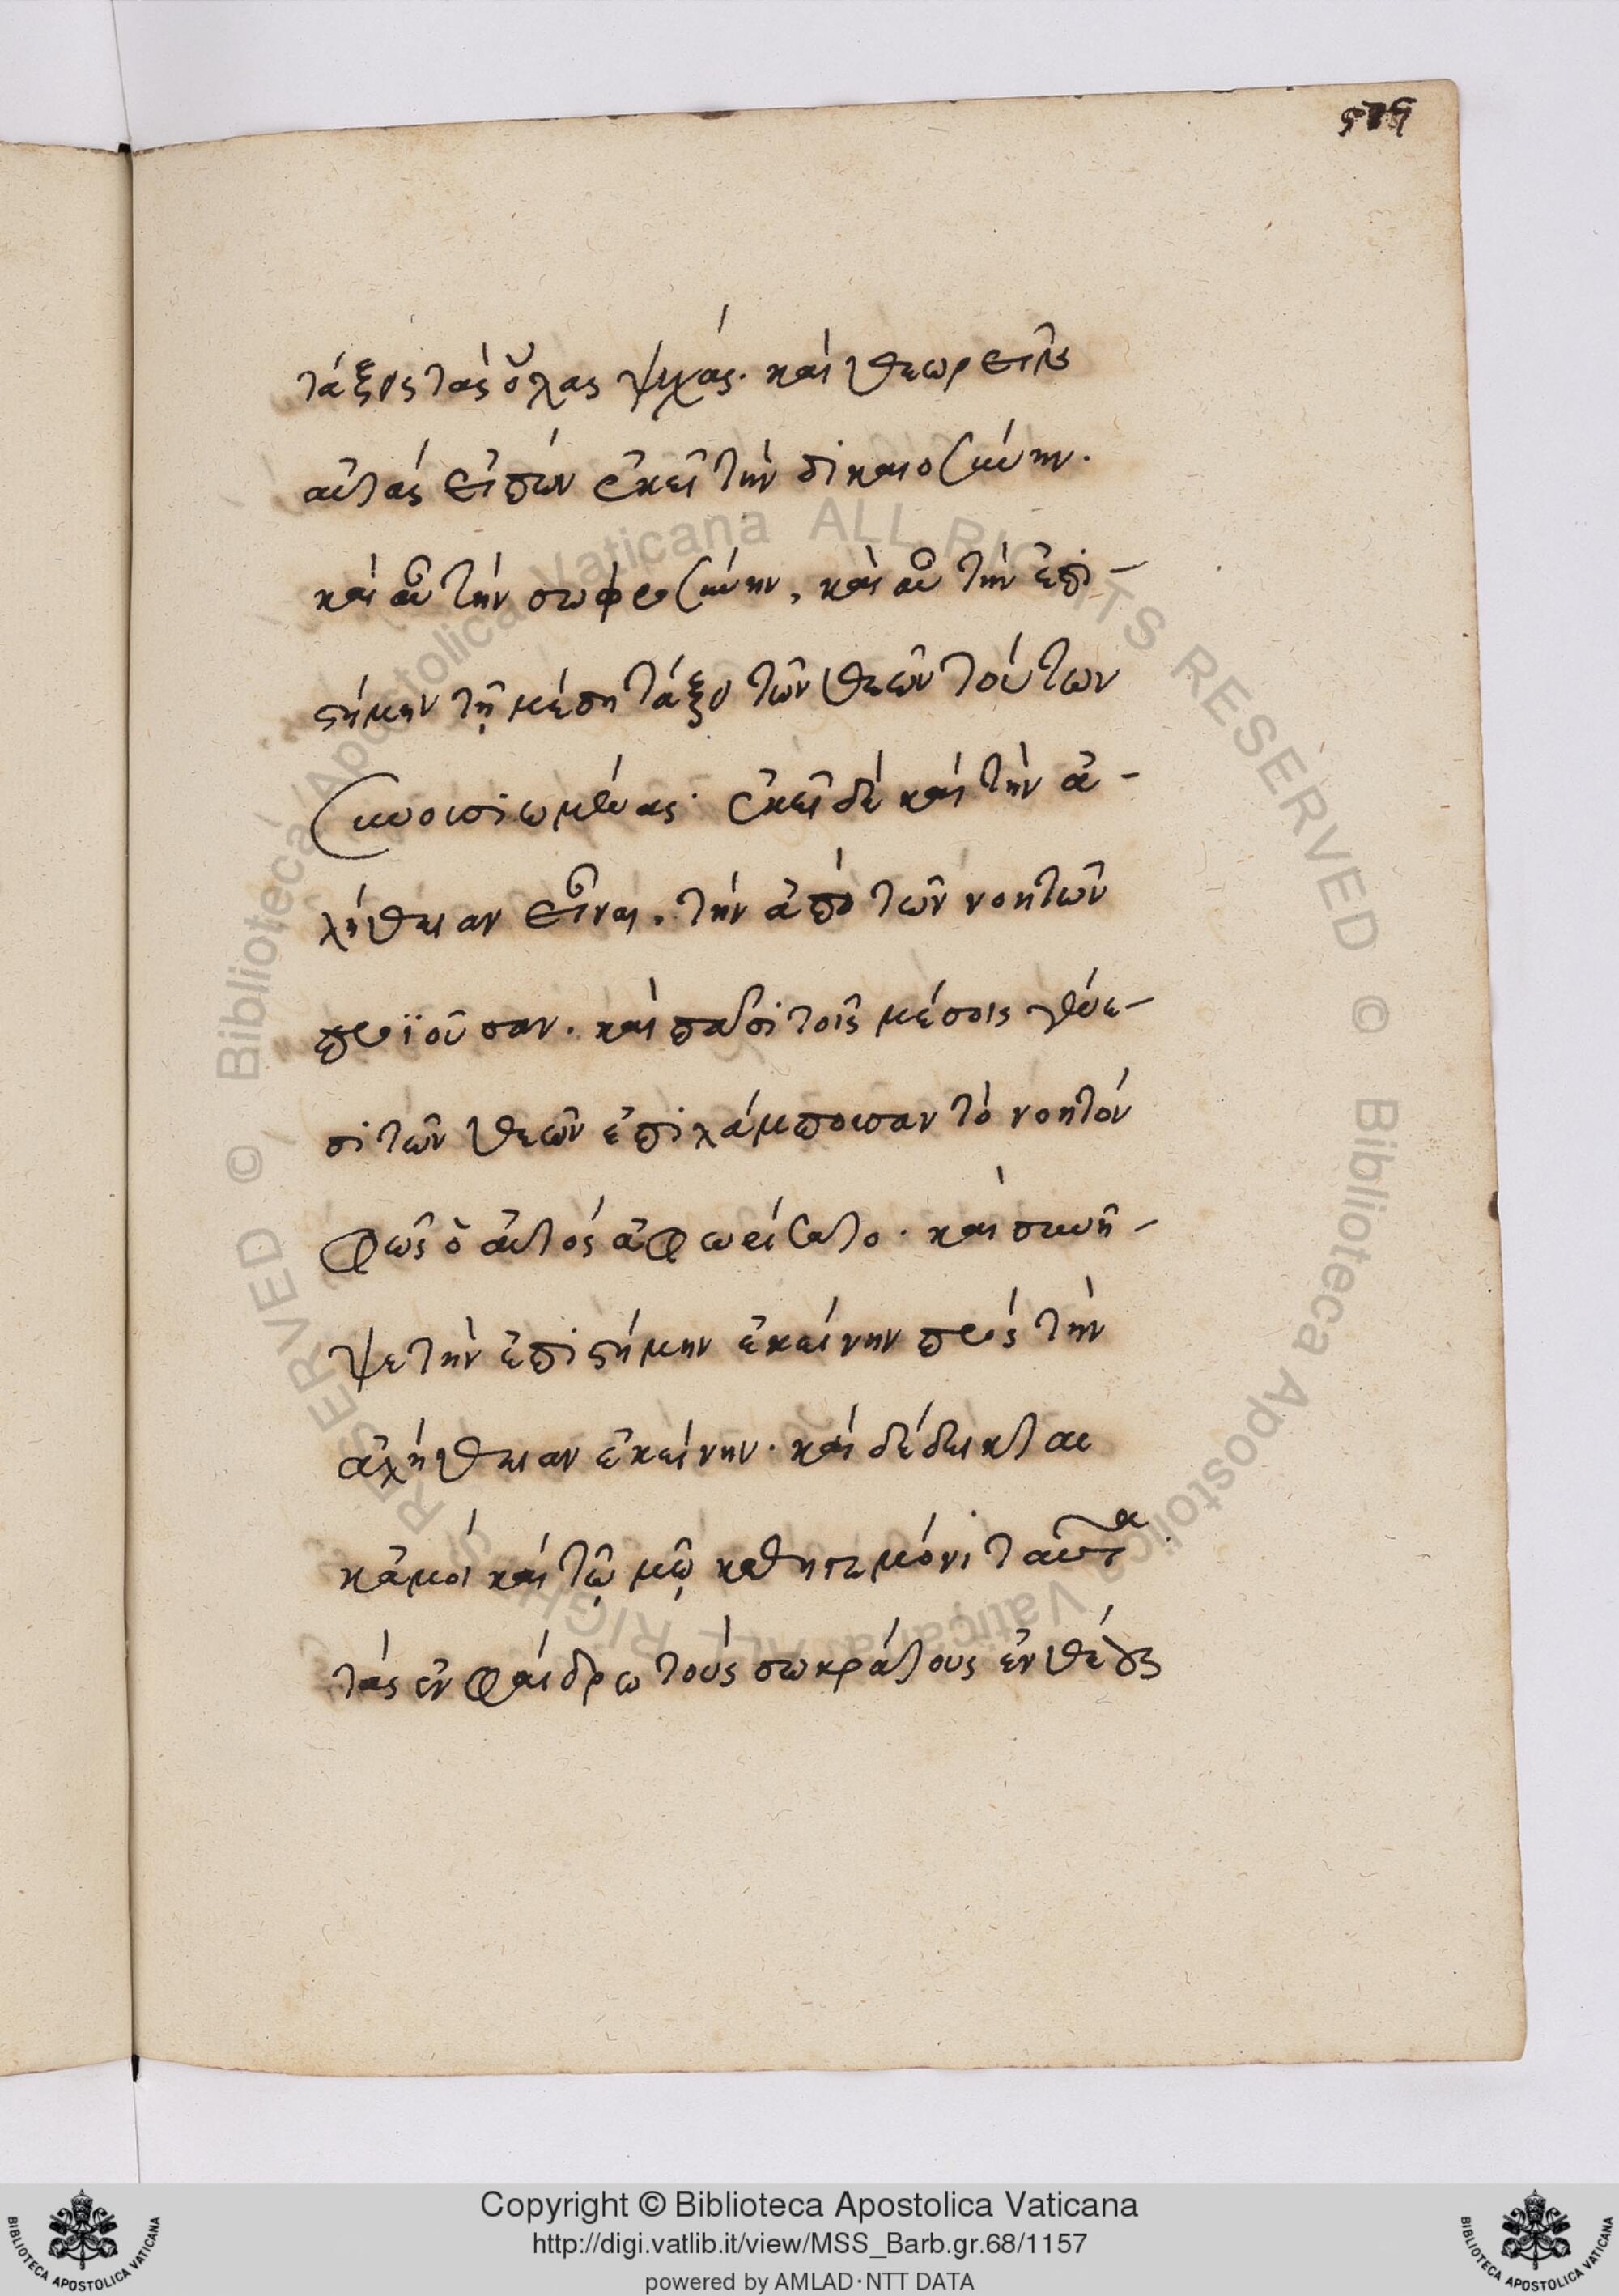 579
τάξεις τὰς ὅλας ψυχάς. καὶ θεωρεῖν
αὐτὰς εἰπὼν ἐκεῖ τὴν δικαιοσύνην.
καὶ αὖ τὴν σωφροσύνην, καὶ αὖ τὴν ἐπι-
στήμην τῇ μέσῃ τάξει τῶν θεῶν τούτων
συνουσιωμένας. ἐκεῖ δὲ καὶ τὴν ἀ-
λήθειαν εἶναι, τὴν ἀπὸ τῶν νοητῶν
προϊοῦσαν. καὶ πᾶσι τοῖς μέσοις γένε-
σι τῶν θεῶν ἐπιλάμπουσαν τὸ νοητὸν
φῶς ὁ αὐτὸς ἀφωρίσατο. καὶ συνῆ-
ψε τὴν ἐπιστήμην ἐκείνην πρὸς τὴν
ἀλήθειαν ἐκείνην. καὶ δέδεικται
κἀμοὶ καὶ τῷ μῷ καθηγεμόνι ταῦτα
τὰς ἐν φαίδρω τοὺς σωκράτους ἐνθέους
Copyright © Biblioteca Apostolica Vaticana
http://digi.vatlib.it/view/MSS_Barb.gr.68/1157
powered by AMLAD·NTT DATA
BIBLIOTECA APOSTOLICA VATICANA
BIBLIOTECA APOSTOLICA VATICANA
© Biblioteca Apostolica Vaticana ALL RIGHTS RESERVED © Biblioteca Apostolica Vaticana ALL RIGHTS RESERVED